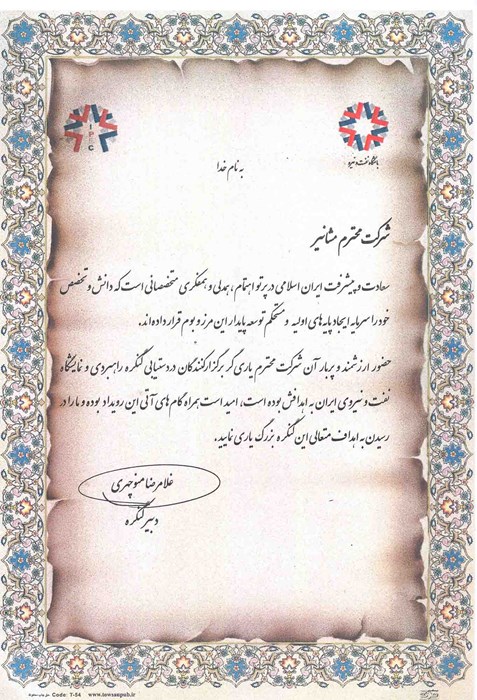 IPEC
باشگاه نفت و نیرو
به نام خدا
شرکت محترم مشانیر
سعادت و پیشرفت ایران اسلامی در پرتو اهتمام، همدلی و همفکری متخصصانی است که دانش و تخصص
خود را سرمایه ایجاد پایه های اولیه و مستحکم توسعه پایدار این مرز و بوم قرار داده اند.
حضور ارزشمند و پربار آن شرکت محترم یاری گر برگزارکنندگان در دستیابی کنگره راهبردی و نمایشگاه
نفت و نیروی ایران به اهدافش بوده است، امید است همراه گام های آتی این رویداد بوده و ما را در
رسیدن به اهداف متعالی این کنگره بزرگ یاری نمایید.
غلامرضا منوچهری
دبیر کنگره
Code: T-54 www.towsanpub.ir